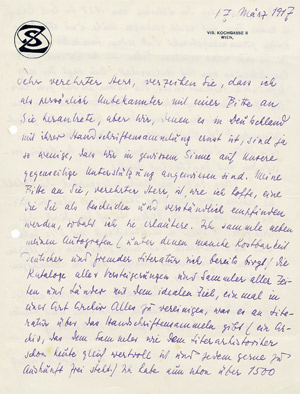 SZ
17. März 1917
VIII. KOCHGASSE 8
WIEN,
Sehr verehrter Herr, verzeihen Sie, dass ich
als persönlich Unbekannter mit einer Bitte an
Sie herantrete, aber wir, denen es in Deutschland
mit ihrer Handschriftensammlung ernst ist, sind ja
so wenige, dass wir in gewissem Sinne auf unsere
gegenseitige Unterstützung angewiesen sind. Meine
Bitte an Sie, verehrter Herr ist wie ich hoffe, eine
die Sie als bescheiden und verständlich empfinden
werden, sobald ich sie erläutere. Ich sammle neben
meinen Autografen (unter denen manche Kostbarkeit
deutscher und fremder Literatur sich bereits birgt) die
Kataloge aller Versteigerungen und Sammler aller Zei-
ten und Länder mit dem idealen Ziel, einmal in
einer Art Archiv Alles zu vereinigen, was es an Lite-
ratur über das Handschriftensammeln gibt (ein Ar-
chiv, das dem Sammler wie dem Literarhistoriker
schon heute gleich wertvoll ist und jedem gerne zu
Auskunft frei steht). Ich habe nun schon über 1500